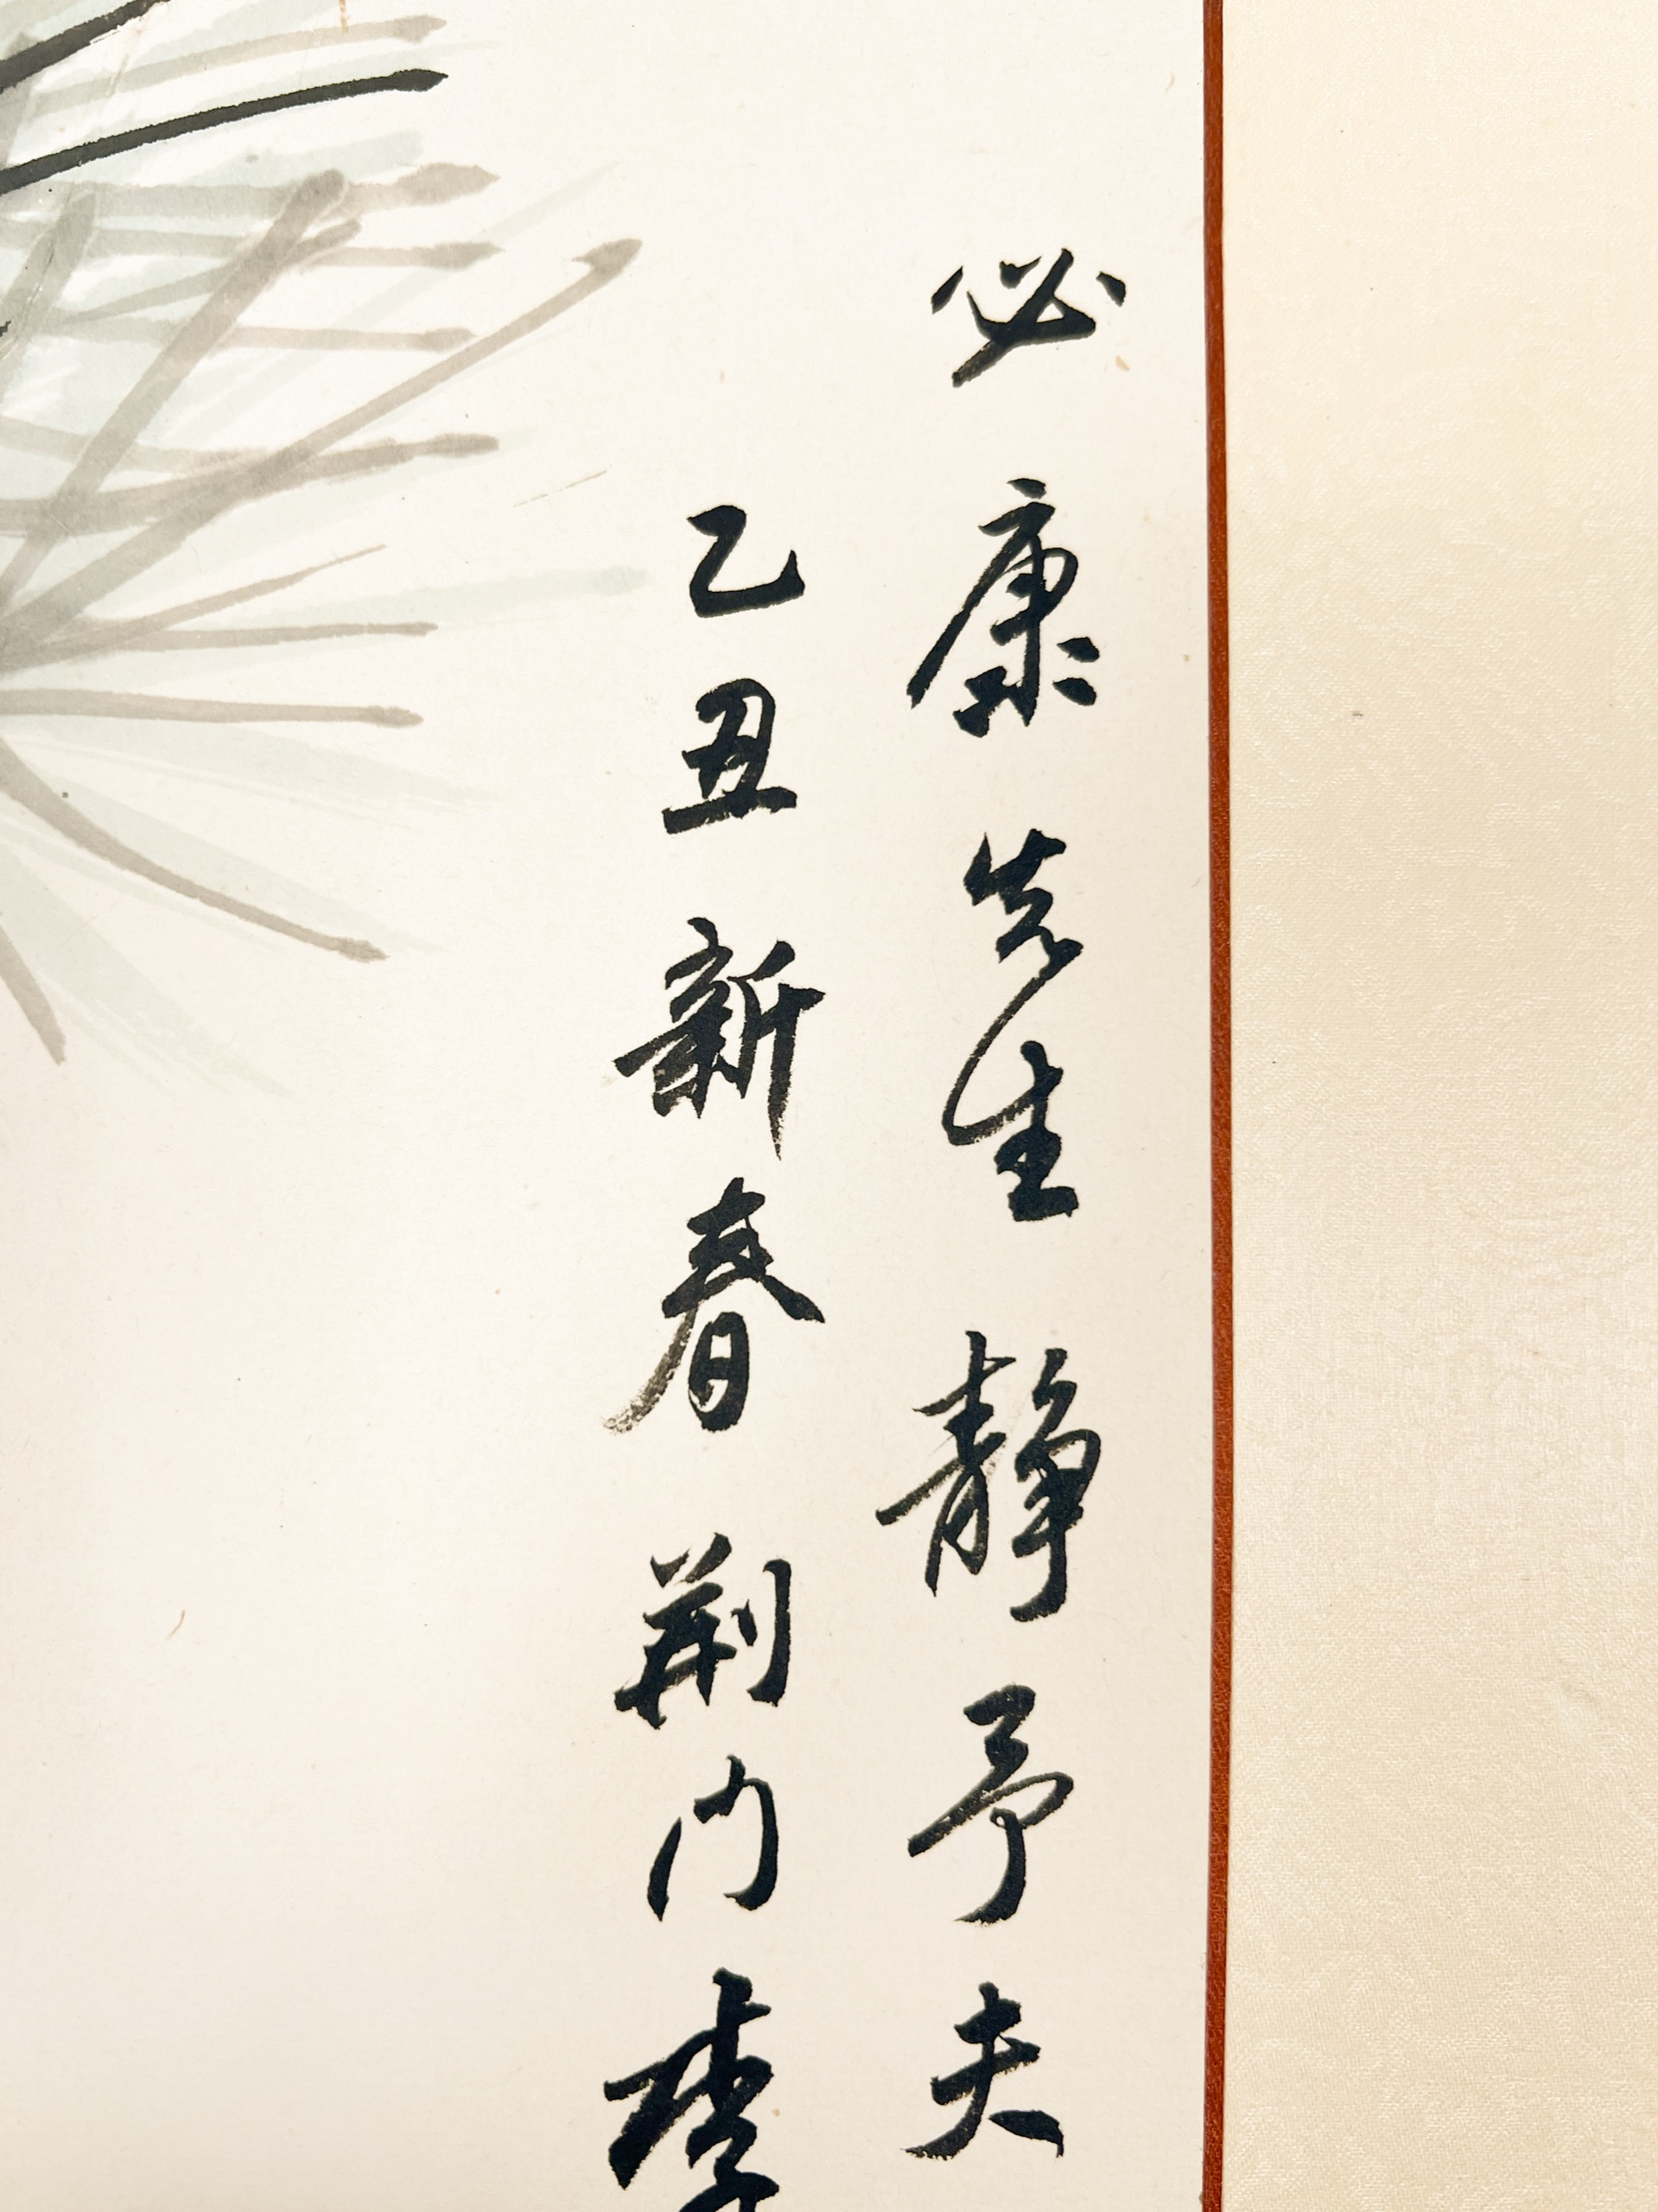 必康先生静予夫
乙丑新春荆门李